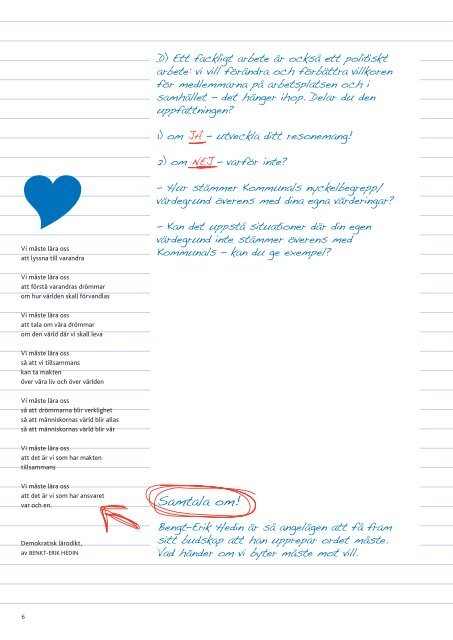 D) Ett fackligt arbete är också ett politiskt
arbete: vi vill förändra och förbättra villkoren
för medlemmarna på arbetsplatsen och i
samhället – det hänger ihop. Delar du den
uppfattningen?
1) om JA – utveckla ditt resonemang!
2) om NEJ – varför inte?
– Hur stämmer Kommunals nyckelbegrepp/
värdegrund överens med dina egna värderingar?
– Kan det uppstå situationer där din egen
värdegrund inte stämmer överens med
Kommunals – kan du ge exempel?
Vi måste lära oss
att lyssna till varandra
Vi måste lära oss
att förstå varandras drömmar
om hur världen skall förvandlas
Vi måste lära oss
att tala om våra drömmar
om den värld där vi skall leva
Vi måste lära oss
så att vi tillsammans
kan ta makten
över våra liv och över världen
Vi måste lära oss
så att drömmarna blir verklighet
så att människornas värld blir allas
så att människornas värld blir vår
Vi måste lära oss
att det är vi som har makten
tillsammans
Vi måste lära oss
att det är vi som har ansvaret
var och en.
Demokratisk lärodikt,
av BENKT-ERIK HEDIN
Samtala om!
Bengt-Erik Hedin är så angelägen att få fram
sitt budskap att han upprepar ordet måste.
Vad händer om vi byter måste mot vill.
6